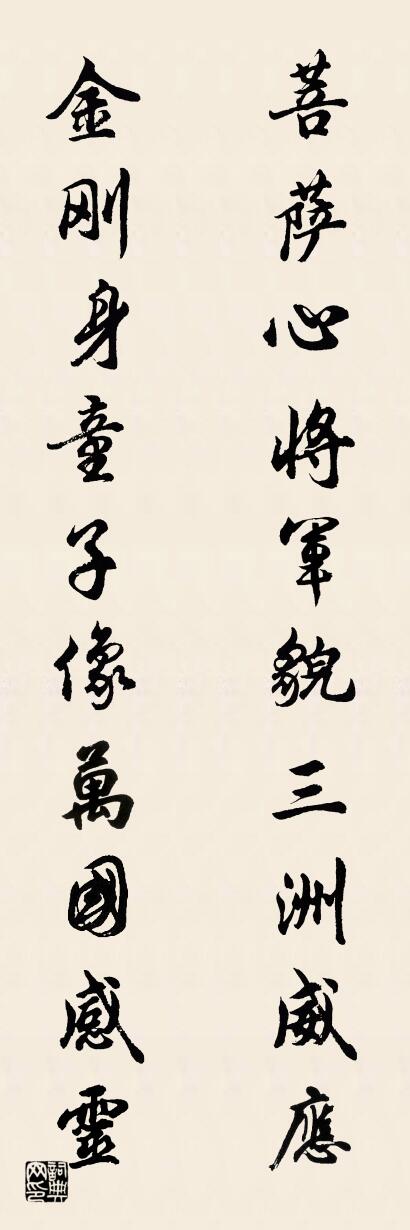 菩薩心將軍貌三洲威應
金刚身童子像萬國感靈
詞典网印